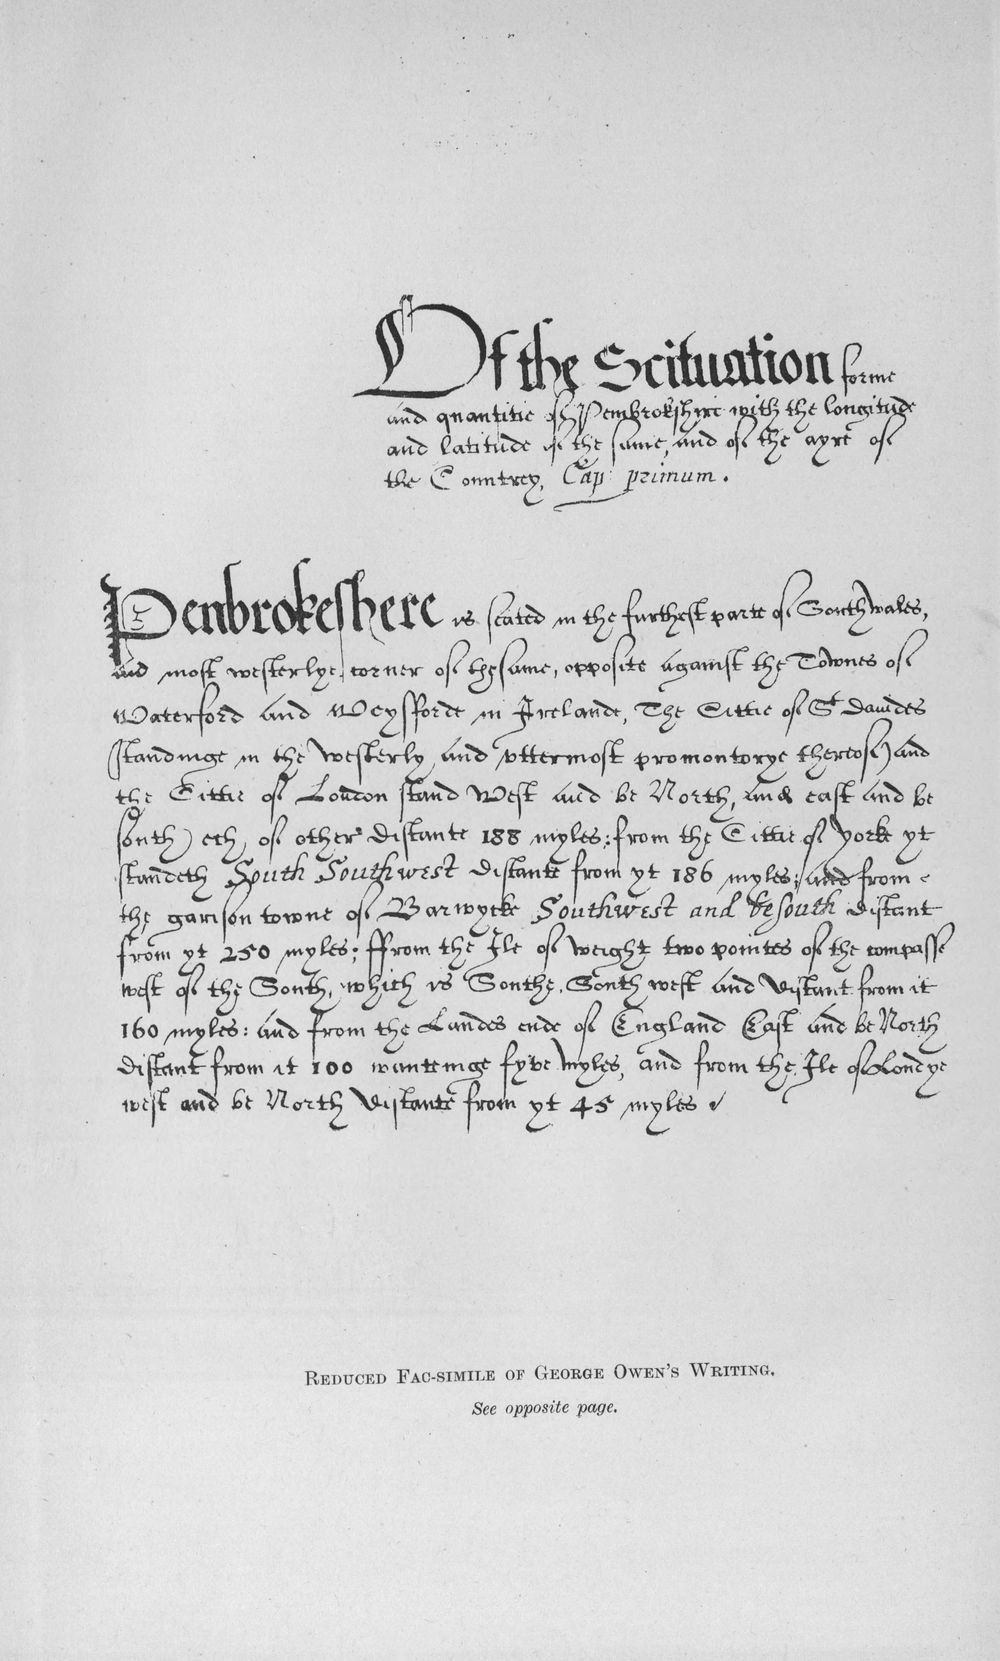 Of the Scituation forme
and quantitie of Penbrokshire with the longitude
and latitude of the same, and of the ayre of
the Countrey, Cap: primum.
Penbrokeshere is seated in the furthest parte of Southwales,
and most westerlye corner of the same, opposite against the Townes of
Waterford and Weysfforde in Irelande, The Cittie of St davides
(standinge in the westerly and vttermost promontorye thereof) and
the Cittie of London stand West and be North, and east and be
south) ech of other distante 188 myles: from the Cittie of yorke yt
standeth South Southwest distante from yt 186 myles: and from
the garison towne of Barwycke Southwest and be south distant
from yt 250 myles; ffrom the Ile of weight two pointes of the compasse
west of the South, which is Southe, South west and distant from it
160 myles: and from the Landes ende of England East and be North
distant from it 100 wanteinge fyve myles, and from the Ile of Londye
west and be North distante from yt 45 myles
REDUCED FAC-SIMILE OF GEORGE OWEN'S WRITING.
See opposite page.